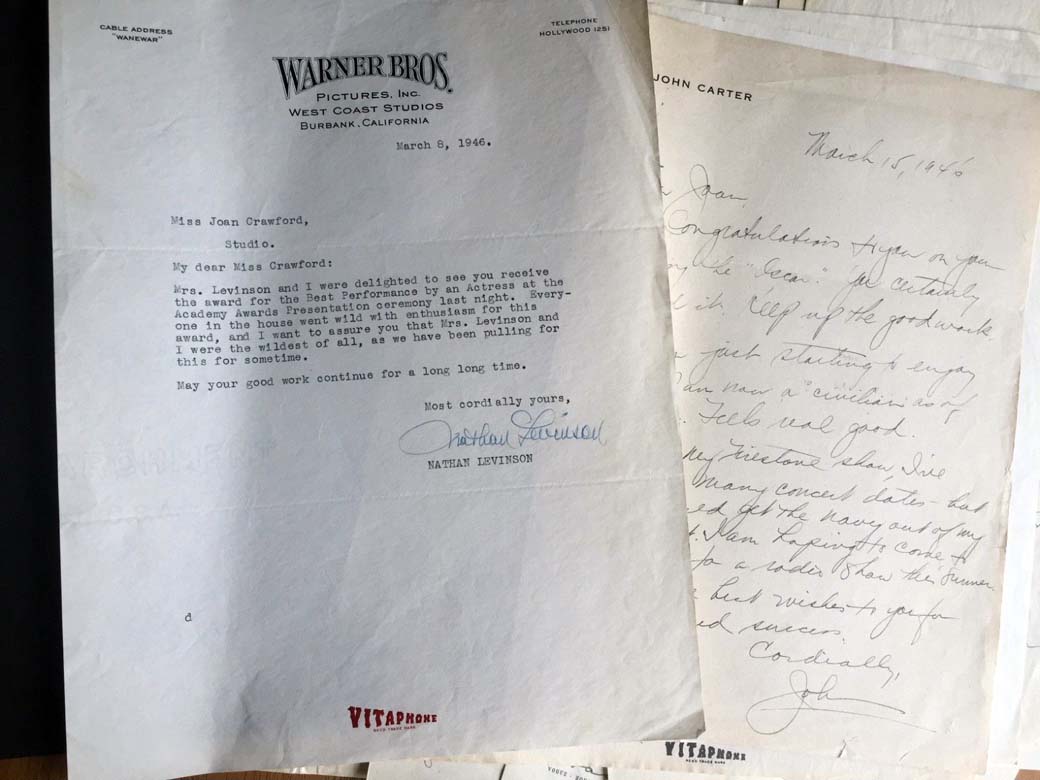 CABLE ADDRESS
"WANEWAR"
TELEPHONE
HOLLYWOOD 1251
WARNER BROS.
PICTURES, INC.
WEST COAST STUDIOS
BURBANK, CALIFORNIA
March 8, 1946.
Miss Joan Crawford,
Studio.
My dear Miss Crawford:
Mrs. Levinson and I were delighted to see you receive
the award for the Best Performance by an Actress at the
Academy Awards Presentation ceremony last night. Every-
one in the house went wild with enthusiasm for this
award, and I want to assure you that Mrs. Levinson and
I were the wildest of all, as we have been pulling for
this for sometime.
May your good work continue for a long long time.
Most cordially yours,
Nathan Levinson
NATHAN LEVINSON
d
VITAPHONE
REG'D TRADE MARK
JOHN CARTER
March 15, 1946
Joan,
Congratulations to you on you
the "Oscar". You certainly
it. Keep up the good work.
just starting to enjoy
am now a "civilian" as of
. Feels real good.
my Firestone show, I've
many concert dates - but
get the navy out of my
. I am hoping to come to
for a radio show this summer.
best wishes to you for
success.
Cordially,
John
VITAPHONE
REG'D TRADE MARK